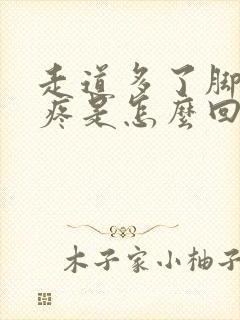 走道多了脚
疼是怎麼回
木子家小柚子